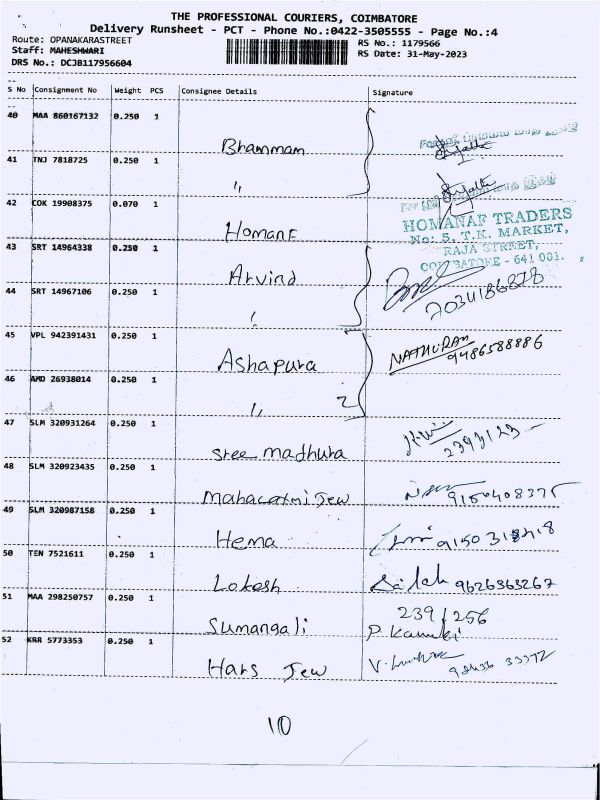 THE PROFESSIONAL COURIERS, COIMBATORE
Delivery Runsheet - PCT - Phone No.:0422-3505555 - Page No.:4
Route: OPANAKARASTREET
Staff: MAHESHWARI
DRS No.: DCJB117956604
RS No.: 1179566
RS Date: 31-May-2023
S No Consignment No Weight PCS Consignee Details Signature
40 MAA 860167132 0.250 1
Bhammam
41 TNJ 7818725 0.250 1
"
42 COK 19908375 0.070 1
HomanF
HOMANAF TRADERS
No: 5, T.K. MARKET,
RAJA STREET,
COIMBATORE - 641 001.
43 SRT 14964338 0.250 1
Arvind
44 SRT 14967106 0.250 1
7034186878
45 VPL 942391431 0.250 1
Ashapura NATHURAM
9486588886
46 AMD 26938014 0.250 1
" 2
47 SLM 320931264 0.250 1
Sree madhura 2393123
48 SLM 320923435 0.250 1
Mahalaxmi Jew 9150408375
49 SLM 320987158 0.250 1
Hema 9150318418
50 TEN 7521611 0.250 1
Lokesh 9626363267
51 MAA 298250757 0.250 1
Sumangali 239/256
52 KRR 5773353 0.250 1
Hars Jew
10